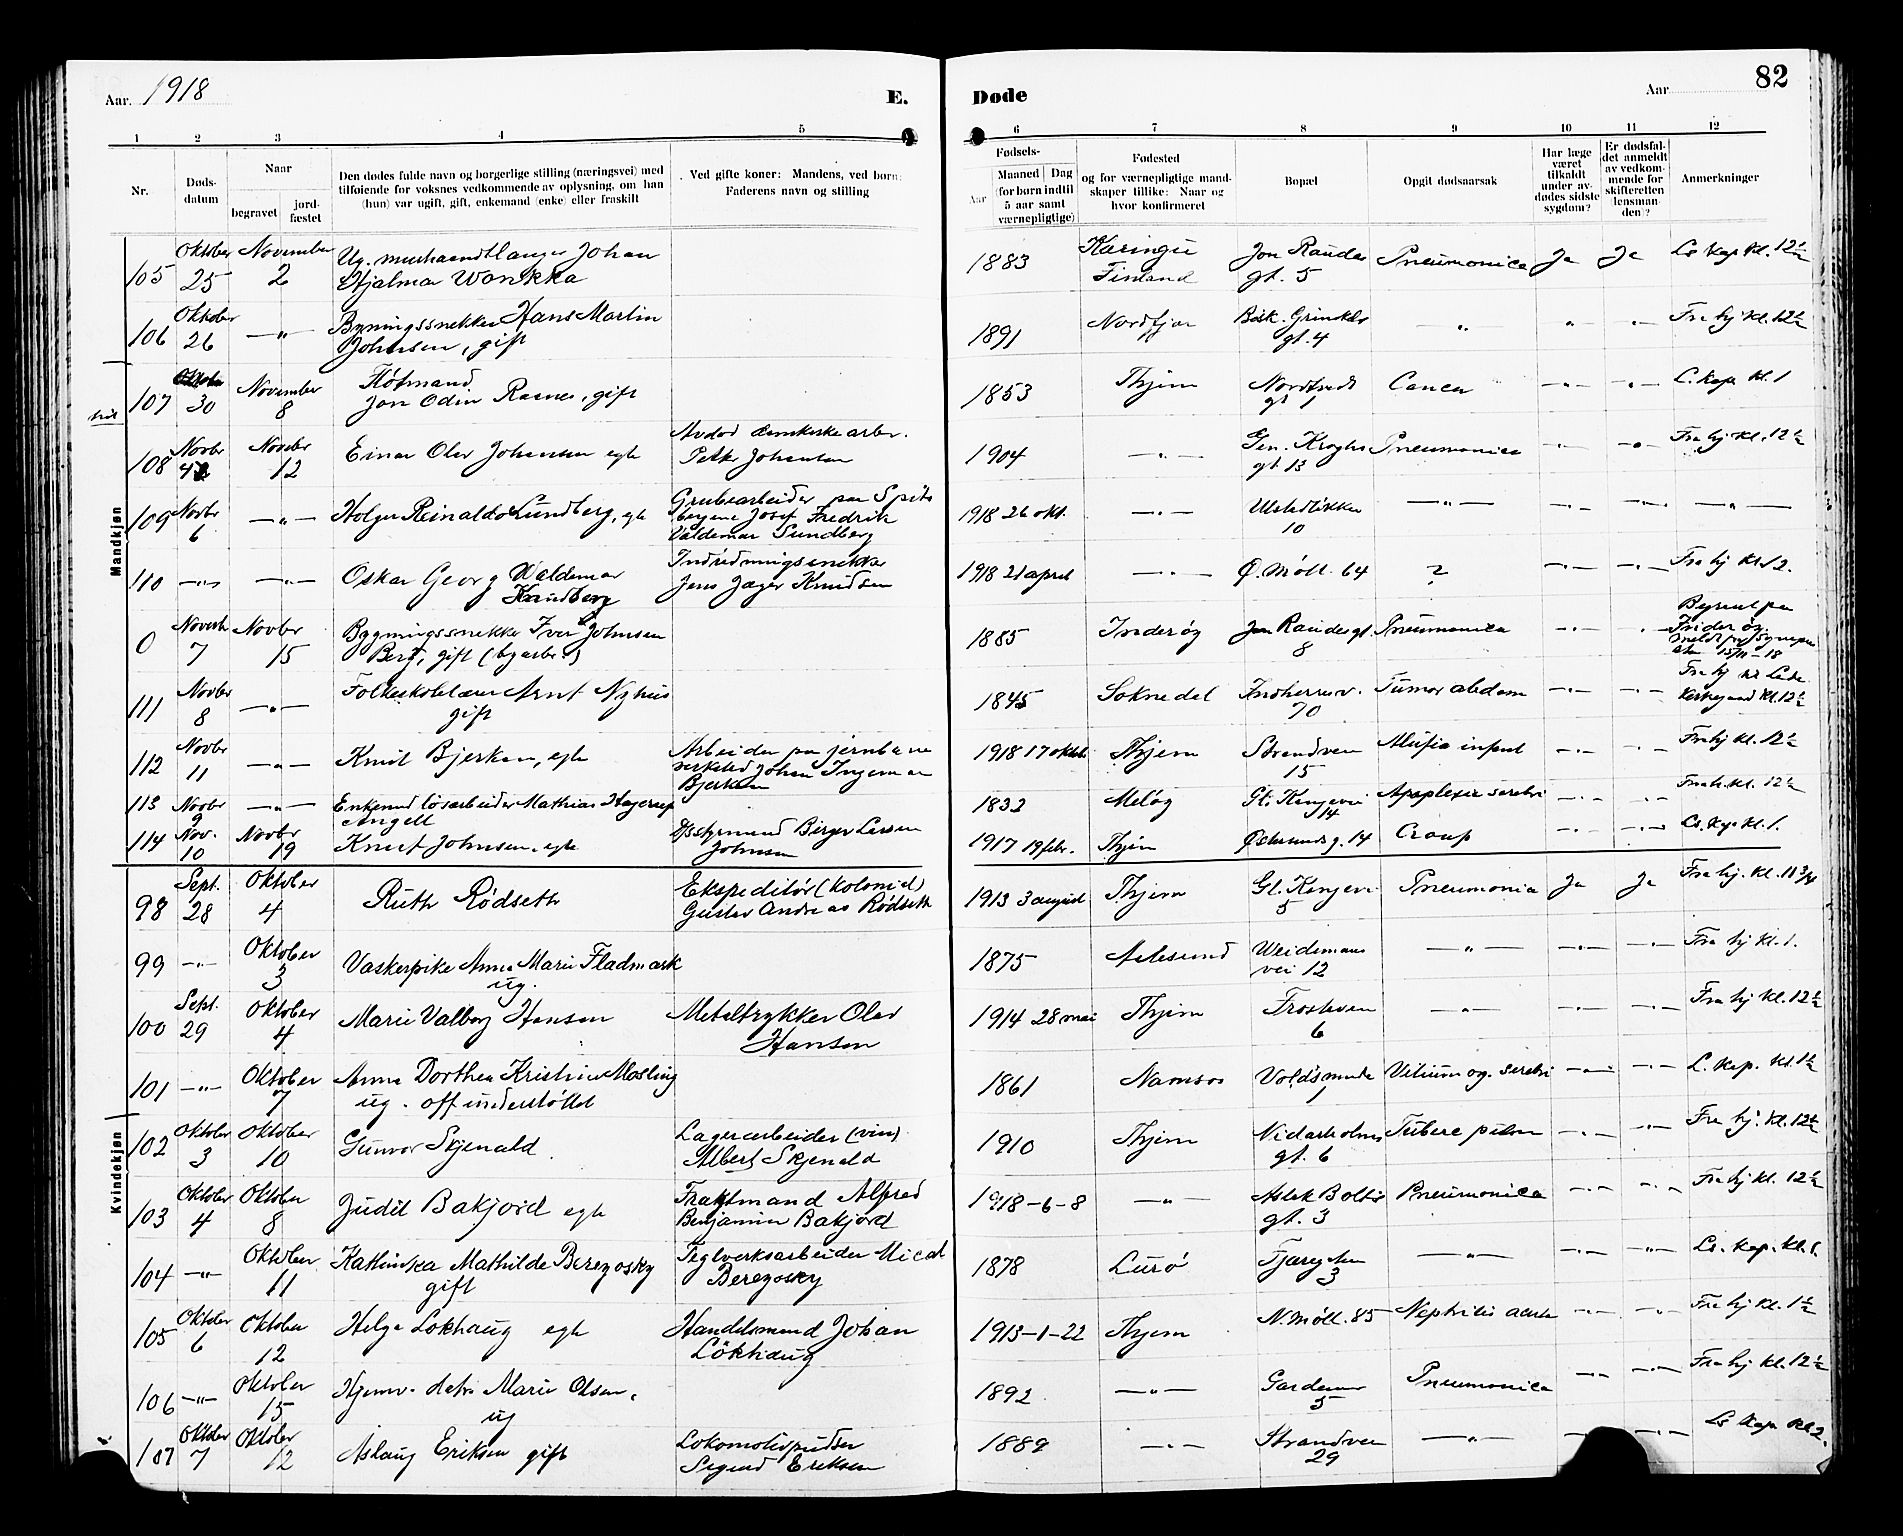 Aar. 1918
E.
Døde
Aar
82
1 2 3 4 5 6 7 8 9 10 11 12
Nr.
Døds-
datum
Naar
begravet
jord-
fæstet
Den dødes fulde navn og borgerlige stilling (næringsvei) med
tilføiende for voksnes vedkommende av oplysning, om han
(hun) var ugift, gift, enkemand (enke) eller fraskilt
Ved gifte koner: Mandens, ved børn:
Faderens navn og stilling
Fødsels-
Aar
Maaned Dag
(for børn indtil
5 aar samt
værnepligtige)
Fødested
og for værnepligtige mand-
skaper tillike: Naar og
hvor konfirmeret
Bopæl
Opgit dødsaarsak
Har læge
været
tilkaldt
under av-
dødes sidste
sygdom?
Er dødsfal-
det anmeldt
av vedkom-
mende for
skifteretten
(lensman-
den)?
Anmerkninger
Mandkjøn
105 Oktober 25 November 2 Ug. murhaandlanger Johan
Hjalmar Wonkka 1883 Finland Jon Raudes
gt. 5 Pneumonica Ja Ja Ls Kap Kl. 12½
106 Oktober 26 —"— Bygningssnekker Hans Martin
Johnsen, gift 1891 gt. 4 —"— " —"— Fra hj Kl. 12½
107 30 November 8
Jon Odin Rasnes, gift 1853 Thjem gt 1 Cancer —"— —"— L. Kap. Kl. 1
108 Novbr 4 Novbr 12 Einar Olav Johansen egte Avdød
Petter Johansen 1904 —"— Gen. Kroghs
gt 13 Pneumonica —"— —"— Fra hj Kl. 12½
109 Novbr 6 —"— Holger Reinaldo Lundberg, egte Grubearbeider paa Spits
bergene Josef Fredrik
Valdemar Lundberg 1918 26 okt. —"— Ulstadløkken
10 —"— —"— —"—
110 —"— —"— Oskar Georg Waldemar
Indredningssnekker
Jens Jæger Knudsen 1918 21 april —"— Ø. Møll. 64 ? —"— —"— Fra hj Kl. 12.
0 Novbr 7 Novbr 15 Bygningssnekker Iver Johnsen
Berg, gift (byarb.) 1885 Inderøy Jon Raudes gt.
8 Pneumonica —"— —"— Byrent paa
Inderøy.
15/11 - 18
111 Novbr 8 —"— Folkeskolelærer Arnt Nyhus
gift 1845 Soknedal Indherredsv.
70 Tumor abdom —"— —"— Fra hj til Lade
Kirkegaard Kl. 12½
112 Novbr 11 —"— Knut Bjerkan, egte Arbeider paa jernbane
verksted Johan Ingeman
Bjerkan 1918 17 oktbr Thjem Strandveien
15 —"— —"— Fra hj Kl. 12½
113 Novbr 9 —"— Enkemand løsarbeider Mathias
Angell 1832 Gl. Kongevei
14 Apoplexie serebri —"— —"— Kl. 12½
114 Nov. 10 Novbr 19 Knut Johnsen, egte Birger Larsen
Johnsen 1917 19 febr. Thjem Østersunds g. 14 Croup —"— —"— Ls. Kap Kl. 1.
Kvindekjøn
98 Sept. 28 Oktober 4 Ruth Rødseth Ekspeditør (kolonial)
Gustav Andreas Rødseth 1913 3 august Thjem Gl. Kongevei
5 Pneumonia Ja Ja Fra hj. Kl. 11¾
99 —"— Oktober 3 Vaskerpike Anna Marie Fladmark
ug. 1875 Aalesund Weidemans
vei 12 —"— —"— —"— Fra hj Kl. 1.
100 Sept. 29 Oktober 4 Marie Valborg Hansen Metaltrykker Olav
Hansen 1914 28 mai Thjem Frostaveien
6 —"— —"— —"— Fra hj Kl. 12½
101 —"— Oktober 7 Anna Dorthea Kristine Mosling
ug. off understøttet 1861 Namsos Voldsminde
1 Vitium og. serebri —"— —"— L. Kap. Kl. 1½
102 Oktober 3 Oktober 10 Gunvor Skjenald Lagerarbeider (vin)
Albert Skjenald 1910 Thjem Nidarholms
gt. 6 Tuberc pulm —"— —"— Fra hj. Kl. 12½
103 Oktober 4 Oktober 8 Judit Bakjord egte Fraktmand Alfred
Benjamin Bakjord 1918-6-8 —"— Aslak Bolts
gt. 3 Pneumonica —"— —"— Fra hj Kl. 12½
104 —"— Oktober 11 Kathinka Mathilde Berezosky
gift Teglverksarbeider
Berezosky 1878 Lurø
3 —"— —"— —"— Ls. Kap. Kl. 1.
105 Oktober 6 Oktober 12 Helga Løkhaug egte Handelsmand Johan
Løkhaug 1913-1-22 Thjem N. Møll. 85 Nephritis acuta —"— —"— Fra hj Kl. 1½
106 —"— Oktober 15 Hjemv. datter Marie Olsen.
ug 1892 —"— Gardemo
5 Pneumonica —"— —"— Fra hj Kl. 12½
107 Oktober 7 Oktober 12 Aslaug Eriksen gift Lokomotivpudser
Sigurd Eriksen 1889 —"— Strandveien
29 —"— —"— Ls Kap Kl 2.